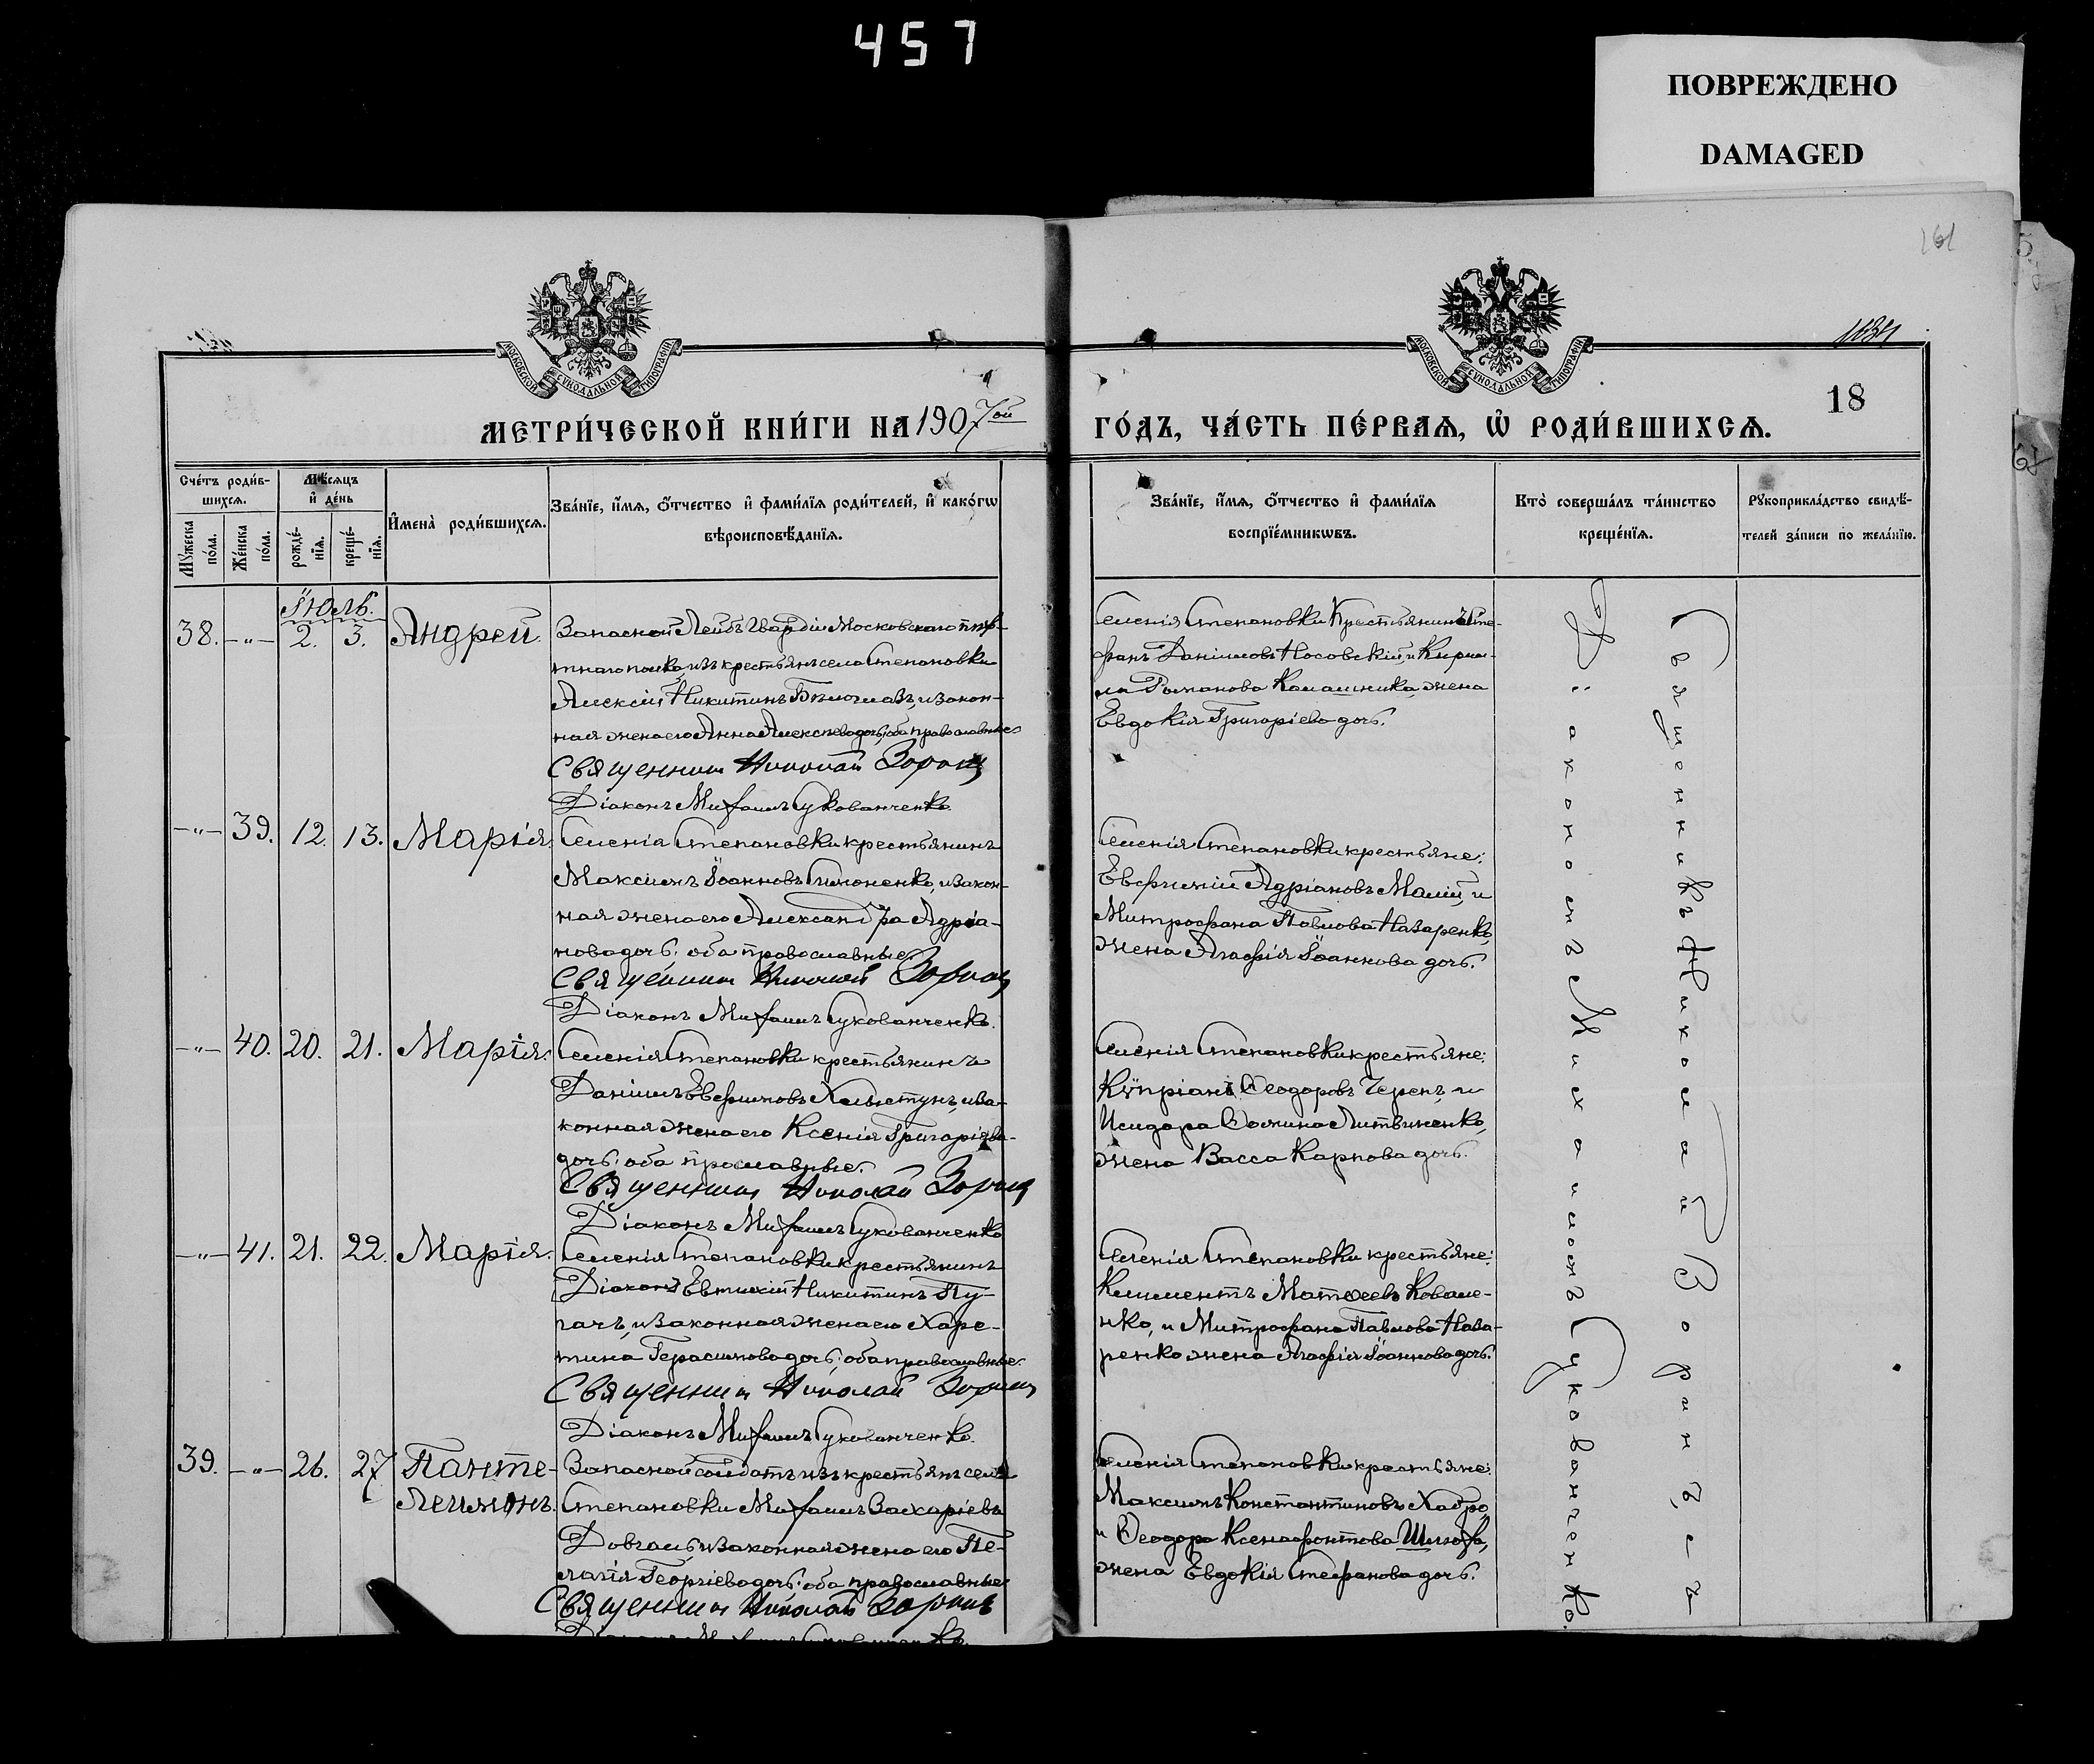 457
ПОВРЕЖДЕНО
DAMAGED
161
1834
18
МОСКОВСКОЙ СѴНОДАЛЬНОЙ ТИПОГРАФІИ
МОСКОВСКОЙ СѴНОДАЛЬНОЙ ТИПОГРАФІИ
МЕТРИ́ЧЕСКОЙ КНИ́ГИ НА 1907ой
ГО́ДЪ, ЧА́СТЬ ПЕ́РВАѦ, Ѡ҆ РОДИ́ВШИХСѦ.
Сче́тъ роди́в-
шихсѧ.
Мꙋ́жеска
по́ла.
Же́нска
по́ла.
Мѣ́сѧцъ
и҆ де́нь
рожде́-
нїѧ.
креще́-
нїѧ.
И҆мена̀ роди́вшихсѧ.
Зва́нїе, и҆́мѧ, ѻ҆́тчество и҆ фами́лїѧ роди́телей, и҆ како́гѡ
вѣроисповѣ́данїѧ.
Зва́нїе, и҆́мѧ, ѻ҆́тчество и҆ фами́лїѧ
воспрїе́мникѡвъ.
Кто̀ соверша́лъ та́инство
креще́нїѧ.
Рꙋкоприкла́дство свидѣ́-
телей за́писи по жела́нїю.
Іюль.
38. —"— 2. 3. Андрей.
Запасной Лейбъ Гвардіи Московскаго
тнаго полка, изъ крестьянъ села Степановки
Алексій Никитинъ и закон-
ная жена его Анна Алексѣева дочь; оба православные
Священникъ Николай Зоринъ
Діаконъ Михаилъ Сукованченко.
Селенія Степановки Крестьянинъ Сте-
фанъ Даніиловъ Носовскій, и Кирил-
ла Романова Калашника, жена
Евдокія Григоріева дочь.
—"— 39. 12. 13. Марія.
Селенія Степановки крестьянинъ
Максимъ Іоанновъ Симоненко, и закон-
ная жена его Александра Адріа-
нова дочь; оба православные.
Священникъ Николай Зоринъ
Діаконъ Михаилъ Сукованченко.
Селенія Степановки крестьяне:
Евфимій Адріановъ Малій, и
Митрофана Павлова Назаренко,
жена Агафія Іоаннова дочь.
—"— 40. 20. 21. Марія.
Селенія Степановки крестьянинъ
Даніилъ Евфимовъ Хлыстунъ, и за-
конная жена его Ксенія Григоріева
дочь: оба праславные.
Священникъ Николай Зоринъ
Діаконъ Михаилъ Сукованченко
Селенія Степановки крестьяне:
Кѵпріанъ Ѳеодоровъ Черенъ, и
Исидора Ѳомина Литвиненко,
жена Васса Карпова дочь.
—"— 41. 21. 22. Марія.
Селенія Степановки крестьянинъ
Діаконъ Евтихій Никитинъ Пу-
гачъ, и законная жена его Харе-
тина Герасимова дочь; оба православные.
Священникъ Николай Зоринъ
Діаконъ Михаилъ Сукованченко.
Селенія Степановки крестьяне:
Климентъ Матѳеевъ Ковале-
нко, и Митрофана Павлова Наза-
ренко жена Агафія Іоаннова дочь.
39. —"— 26. 27 Панте-
леимонъ.
Запасной солдатъ изъ крестьянъ села
Степановки Михаилъ Захаріевъ
Довгаль, и законная жена его Пе-
лагія Георгіева дочь: оба православные
Священникъ Николай Зоринъ
Селенія Степановки крестьяне:
Максимъ Константиновъ Хабро,
и Ѳеодора Ксенофонтова
жена Евдокія Стефанова дочь.
Священникъ Николай Зоринъ, съ
Діакономъ Михаиломъ Сукованченко.